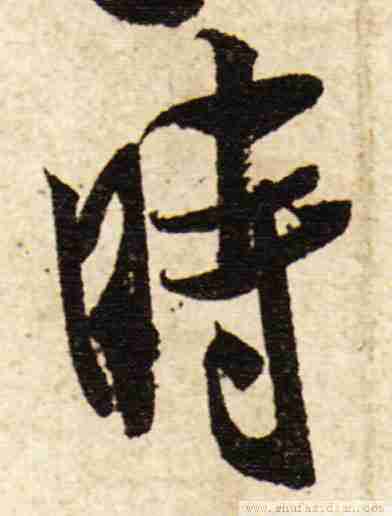 時
www.shufazidian.com